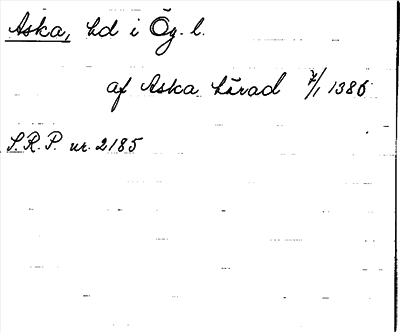 Aska, hd i Ög. l.
af Aska härad 7/1 1386
S.R.P. nr. 2185